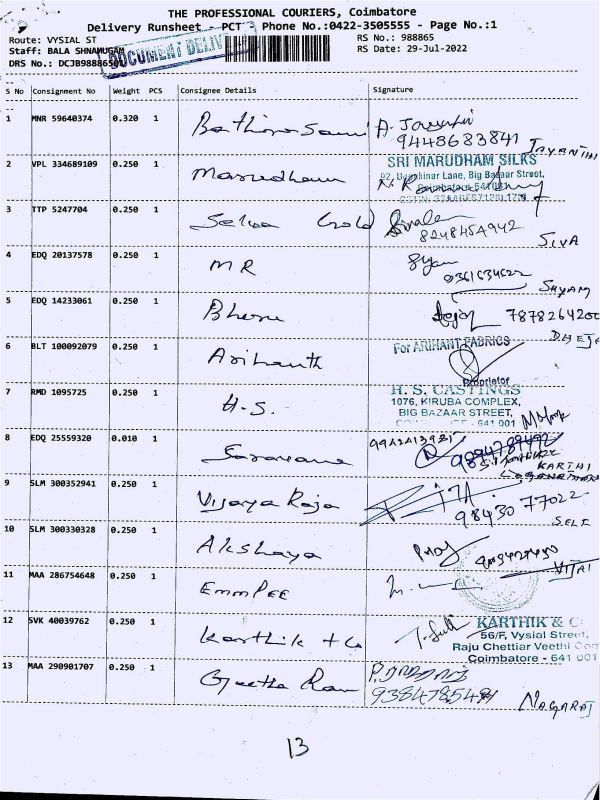 THE PROFESSIONAL COURIERS, Coimbatore
Delivery Runsheet - PCT 3 Phone No.:0422-3505555 - Page No.:1
Route: VYSIAL ST
RS No.: 988865
Staff: BALA SHNAMUGAM
RS Date: 29-Jul-2022
DRS No.:
DOCUMENT DELIV
S No Consignment No Weight PCS Consignee Details Signature
1 MNR 59640374 0.320 1
9448683841 JAYANTHI
2 VPL 334689109 0.250 1 Marudham
SRI MARUDHAM SILKS
Lane, Big Bazaar Street,
3 TTP 5247704 0.250 1 Selva Gold
8248454942 SIVA
4 EDQ 20137578 0.250 1 MR
SHYAM
5 EDQ 14233061 0.250 1
7878264200
6 BLT 100092079 0.250 1 Arihanth
For ARIHANT FABRICS
Proprietor
7 RMD 1095725 0.250 1 H.S.
H. S. CASTINGS
1076, KIRUBA COMPLEX,
BIG BAZAAR STREET,
641 001
8 EDQ 25559320 0.010 1 Saravana
KARTHI
9 SLM 300352941 0.250 1 Vijaya Raja
98430 77022
SELF
10 SLM 300330328 0.250 1 Akshaya
VIJAI
11 MAA 286754648 0.250 1 EMMPEE
12 SVK 40039762 0.250 1 Karthik + Co
KARTHIK & C
56/F, Vysial Street,
Raju Chettiar Veethi
Coimbatore - 641 001
13 MAA 290901707 0.250 1 Geetha Ram
NAGARAJ
13